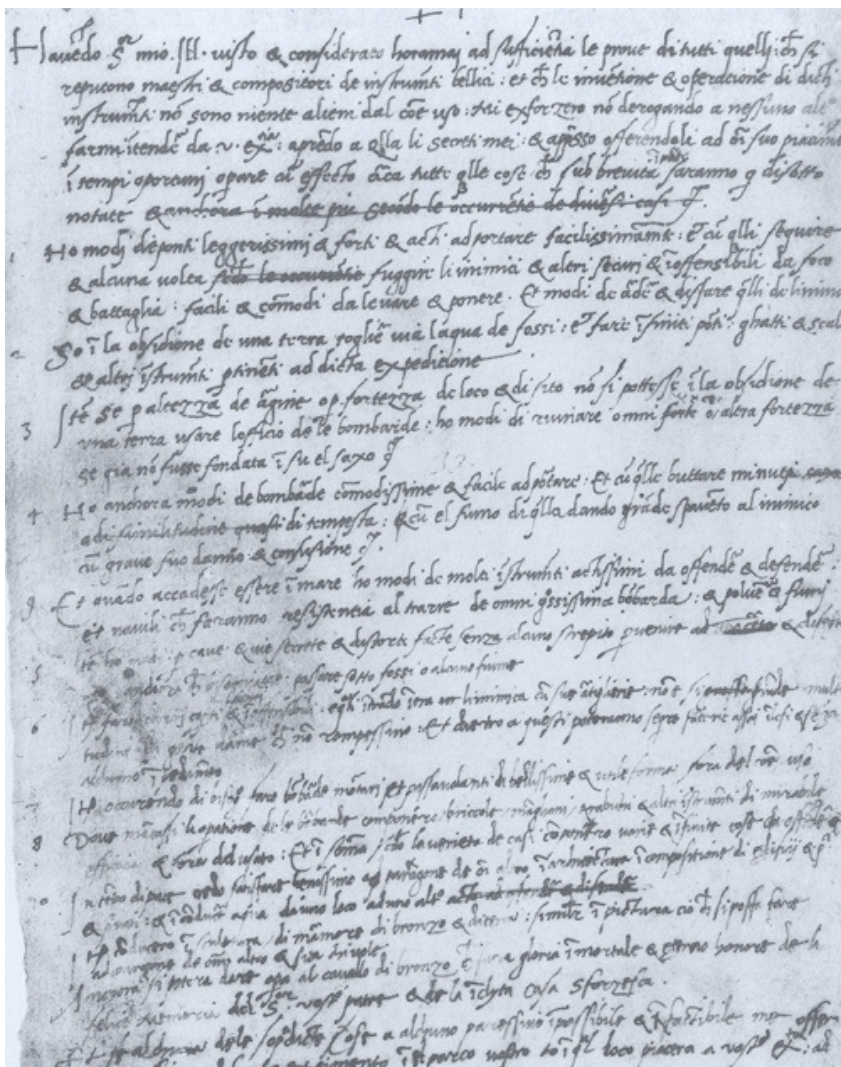 Havēdo S.r mio Ill. visto & considerato horamai ad sufficiētia le prove di tutti quelli ch̄ si
reputono maestri & compositori de instrumti bellici: et ch̄ le inventione & operatione di dicti
instrumti nō sono niente alieni dal cōe uso: mi exforzero nō derogando a nessuno alt°
farmi ītendē da v. ex.tia: aprēdo a q̄lla li secreti mei: & app̄sso offerendoli ad oī suo piacimē
ī tempi oportuni opare cū effecto circa tutte q̄lle cose ch̄ sub brevita ī parte saranno q̄ disotto
notate & anchora ī molte piu secōdo le occurrētie de divēsi casi
1 Ho modi de ponti leggerissimi & forti & acti ad portare facilissimamte: et cū q̄lli seguire
& alcuna volta fuggire li inimici & altri securi & īoffensibili da foco
& battaglia: facili & cōmodi da levare & ponere. Et modi de ardē & disfare q̄lli de linimico
2 So ī la obsidione de una terra toglie via laqua de fossi: et fare īfiniti pōti ghatti & scale
& altri īstrumti ptinenti ad dicta expeditione
3 Itē se p altezza de argine o p fortezza de loco & di sito nō si pottesse ī la obsidione de
una terra usare lofficio de le bombarde: ho modi di ruinare omni forte o altra fortezza
se gia nō fusse fondata ī su el saxo
4 Ho anchora modi de bombarde cōmodissime & facile ad portare: Et cū q̄lle buttare minuti
ad similitudine quasi di tempesta: & cū el fumo di q̄lla dando grāde spavēto al inimico
cū grave suo danno & confusione
9 Et quādo accadesse essere ī mare ho modi de molti īstrumti actissimi da offendē & defendē:
et navili ch̄ faranno resistentia al trarre de omni grossissima bōbarda: & polvē & fumi
5 Itē ho modi p cave & vie secrete & distorte facte senza alcuno strepito pvenire ad &
anchora ch̄ bisogniasse passare sotto fossi o alcuno fiume
6 Itē faro carri coperti & īoffensibili: e quali ītrādo ītra linimica cū sue artiglierie: nō e si
ch̄ nō rompessino: Et dietro a questi poteranno
alchuno īpedimēto
7 Itē occurrendo di bisognio faro bōbarde mortari et passavolanti di bellissime & utile forme fora del cōe uso
8 Dove mācassi la opatione de le bōbarde componero briccole manghani trabuchi & altri īstrumti di mirabile
efficacia & fora del usato: Et ī sōma secōdo la varieta de casi componero varie & īfinite cose da offendē
10 In tēpo di pace credo satisfare benissimo ad paragone de oī altro ī architectura ī compositione di edificii &
& privati: & ī conducē aqua da uno loco ad uno alt°
Itē conducero ī sculptura di marmore di bronzo & di terra: similiter ī pictura cio ch̄ si possa fare
ad paragone de omni altro & sia chi vole
Anchora si potera dare opa al cavallo di bronzo ch̄ sara gloria īmortale & eterno honore de la
felice memoria del S.r vost.° patre & de la īclyta casa Sforzesca.
Et se alchuna de le sopradicte cose a alchuno paressino īpossibile & īfactibile me offero
ī el parco vostro o ī q̄l loco piacera a vost.a ex.: